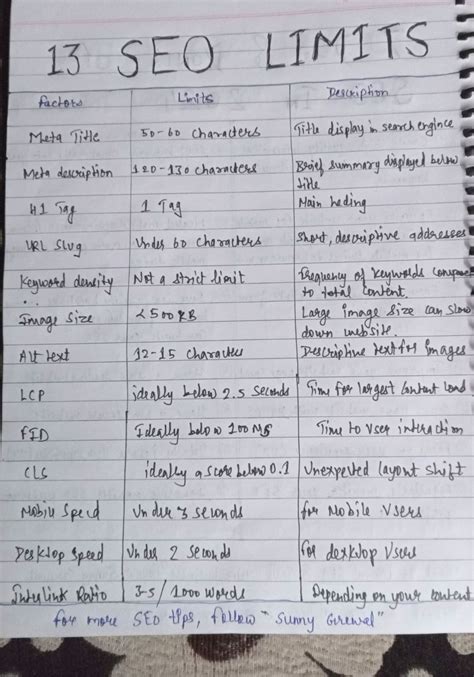 13 SEO LIMITS
Factors Limits Description
Meta Title 50-60 characters Title display in search engince
Meta description 120-130 characters Brief summary displayed below
title
H1 Tag 1 Tag Main heding
URL Slug Under 60 characters Short, descriptive addresses
Keyword density Not a strict limit Frequency of keywords
to total content.
Image Size <500KB Large image size can slow
down website.
Alt text 12-15 character Descriptive text for images
LCP ideally below 2.5 seconds Time for largest content load
FID Ideally below 100 MS Time to User interaction
CLS ideally a score below 0.1 Unexpected layout shift
Mobile Speed Under 3 seconds for Mobile Users
Desktop Speed Under 2 seconds for desktop Users
Ratio 3-5/1000 words Depending on your content
for more SEO tips, follow "Sunny Grewal"